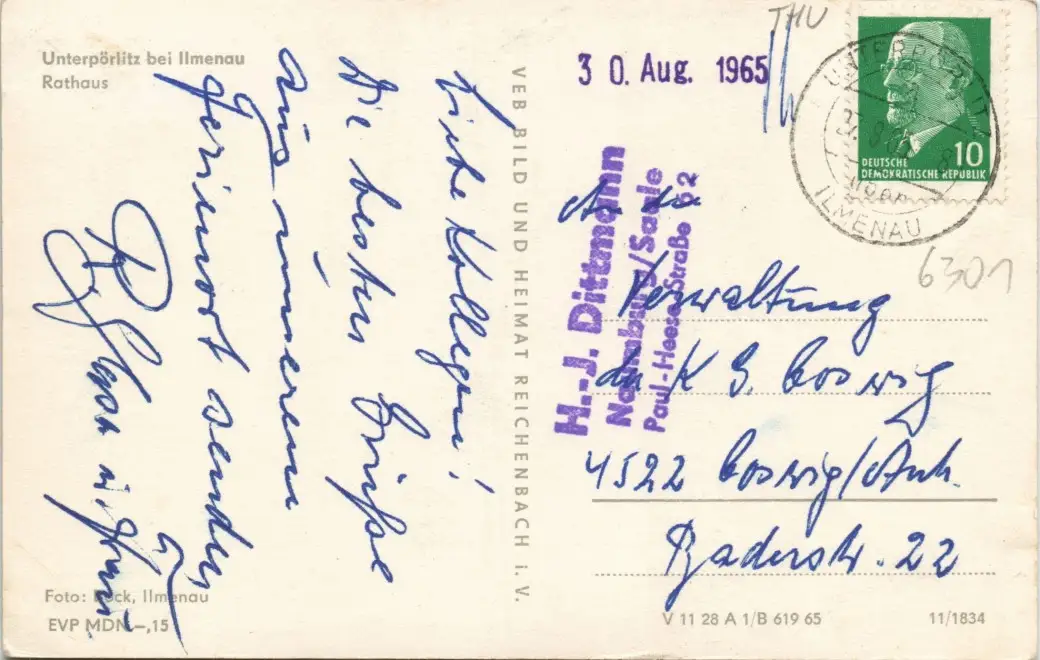 Unterpörlitz bei Ilmenau
Rathaus
Liebe Kollegen!
Die besten Grüße
aus unserem
Ferienort senden
u. Frau
Foto: Bock, Ilmenau
EVP MDN –,15
VEB BILD UND HEIMAT REICHENBACH i. V.
30. Aug. 1965
THU
H.-J. Dittmann
Naumburg/Saale
Paul-Heese-Straße 02
UNTERPÖRLITZ
ILMENAU
10
DEUTSCHE
DEMOKRATISCHE REPUBLIK
6301
An die
Verwaltung
der K G. Coswig
4522 Coswig/Anh.
Baderstr. 22
V 11 28 A 1/B 619 65
11/1834